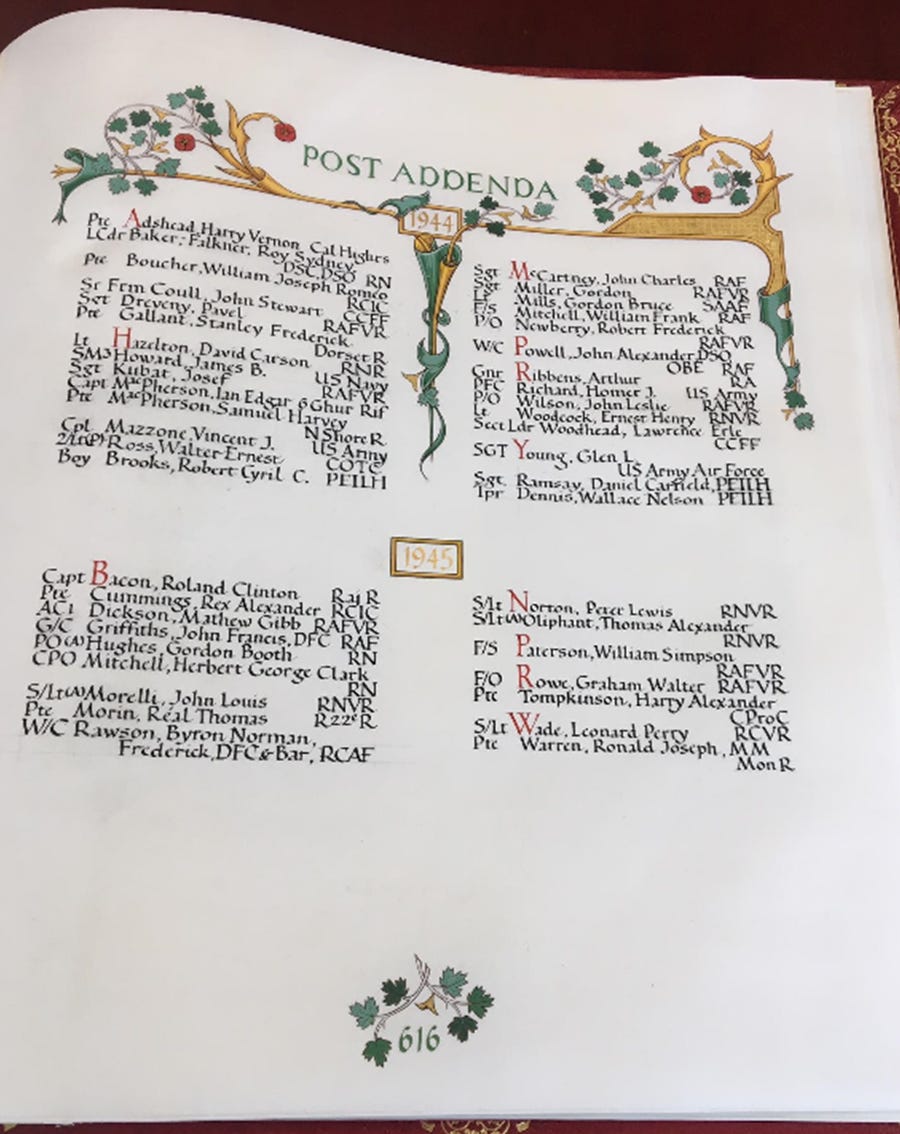 POST ADDENDA
1944
Pte Adshead, Harry Vernon Cal Highrs
LCdr Baker-Falkner, Roy Sydney,
DSC, DSO RN
Pte Boucher, William Joseph Romeo
RCIC
Sr Frm Coull, John Stewart CCFF
Sgt Dreveny, Pavel RAFVR
Pte Gallant, Stanley Frederick
Dorset R
Lt Hazelton, David Carson RNR
SM3 Howard, James B. US Navy
Sgt Kubat, Josef RAFVR
Capt MacPherson, Ian Edgar 6 Ghur Rif
Pte MacPherson, Samuel Harvey
N Shore R
Cpl Mazzone, Vincent J. US Army
2/Lt(P) Ross, Walter Ernest COTC
Boy Brooks, Robert Cyril C. PEILH
Sgt McCartney, John Charles RAF
Sgt Miller, Gordon RAFVR
Lt Mills, Gordon Bruce SAAF
F/S Mitchell, William Frank RAF
P/O Newberry, Robert Frederick
RAFVR
W/C Powell, John Alexander DSO
OBE RAF
Gnr Ribbens, Arthur RA
PFC Richard, Homer J. US Army
P/O Wilson, John Leslie RAFVR
Lt Woodcock, Ernest Henry RNVR
Sect Ldr Woodhead, Lawrence Erle
CCFF
SGT Young, Glen L.
US Army Air Force
Sgt. Ramsay, Daniel Carfield, PEILH
Tpr Dennis, Wallace Nelson PEILH
1945
Capt Bacon, Roland Clinton Raj R
Pte Cummings, Rex Alexander RCIC
AC1 Dickson, Mathew Gibb RAFVR
G/C Griffiths, John Francis, DFC RAF
PO(A) Hughes, Gordon Booth RN
CPO Mitchell, Herbert George Clark
RN
S/Lt(A) Morelli, John Louis RNVR
Pte Morin, Réal Thomas R22eR
W/C Rawson, Byron Norman,
Frederick, DFC & Bar, RCAF
S/Lt Norton, Peter Lewis RNVR
S/Lt(A) Oliphant, Thomas Alexander
RNVR
F/S Paterson, William Simpson
RAFVR
F/O Rowe, Graham Walter RAFVR
Pte Tompkinson, Harry Alexander
C Pro C
S/Lt Wade, Leonard Perry RCVR
Pte Warren, Ronald Joseph, MM
Mon R
616